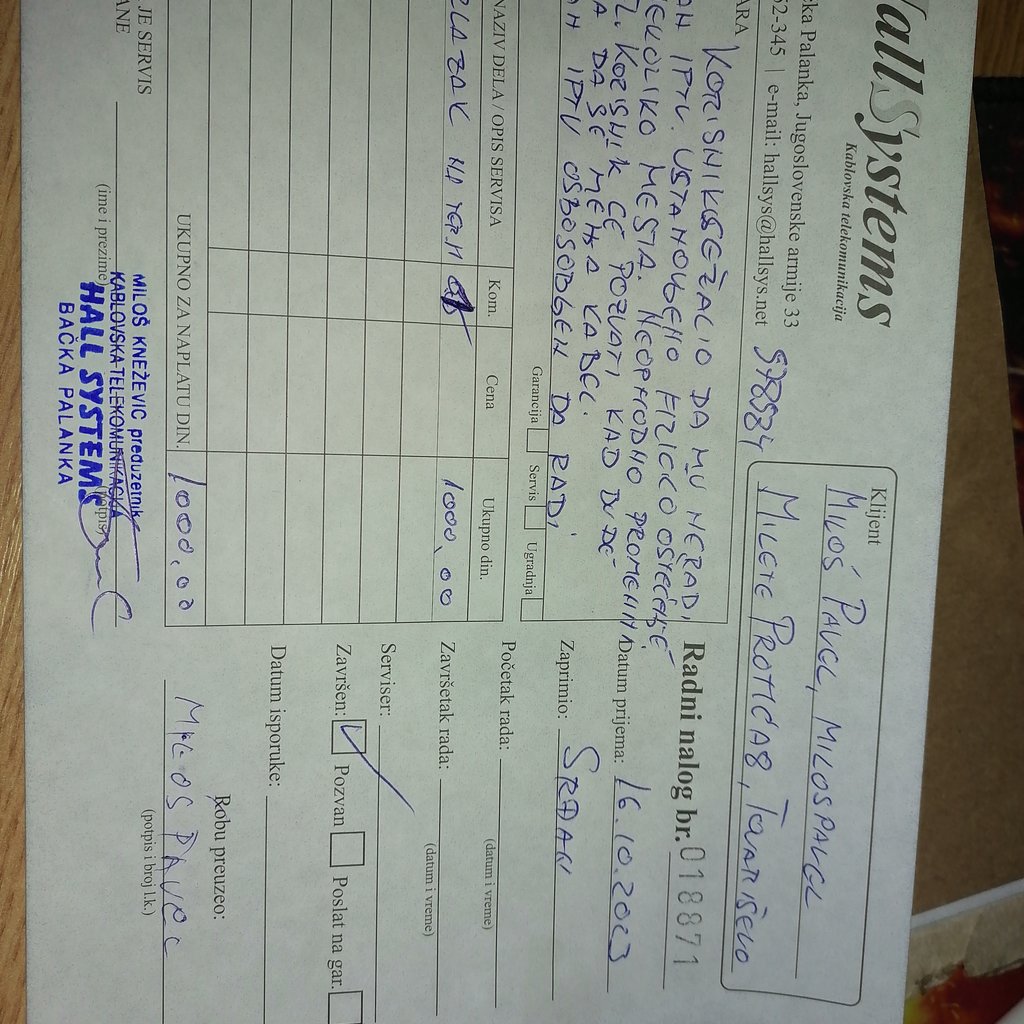 HallSystems
Kablovska telekomunikacija
čka Palanka, Jugoslovenske armije 33
52-345 | e-mail: hallsys@hallsys.net
578534
Klijent
MILOŠ PAVCL, MILOSPAVCL
MILETE PROTIĆA 8, TOVARIŠEVO
Radni nalog br. 018871
ARA
KORISNIK SE ŽALIO DA MU NE RADI
AN IPTV. USTANOVLJENO FIZIČKO OŠTEĆENJE
EKOLIKO MESTA. NEOPHODNO PROMENITI
L. KORISNIK ĆE POZVATI KAD BUDE
A DA SE MENJA KABL.
AN IPTV OSPOSOBLJEN DA RADI.
Datum prijema: 16.10.2023
Zaprimio: SRĐAN
Garancija Servis Ugradnja
NAZIV DELA / OPIS SERVISA Kom. Cena Ukupno din.
ZLAZAK NA TEREN 1000,00
UKUPNO ZA NAPLATU DIN. 1000,00
Početak rada:
(datum i vreme)
Završetak rada:
(datum i vreme)
Serviser:
Završen: Pozvan Poslat na gar.
Datum isporuke:
Robu preuzeo:
MILOS PAVCL
(potpis i broj l.k.)
JE SERVIS
ANE
(ime i prezime)
(potpis)
MILOŠ KNEŽEVIĆ preduzetnik
KABLOVSKA TELEKOMUNIKACIJA
HALL SYSTEMS
BAČKA PALANKA